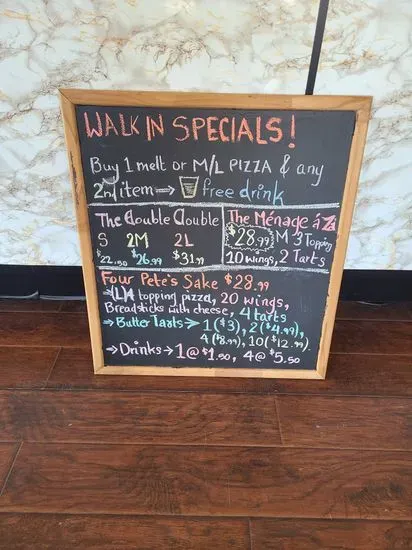 WALK IN SPECIALS!
Buy 1 melt or M/L PIZZA & any
2nd item → free drink
The double Double
S 2M 2L
$22.50 $26.99 $31.99
The Ménage á Za
$28.99 M 3 Topping
10 wings, 2 Tarts
Four Pete's Sake $28.99
→ (L) 4 topping pizza, 20 wings,
Breadsticks with cheese, 4 tarts
→ Butter Tarts → 1 ($3), 2 ($4.99),
4 ($8.99), 10 ($12.99)
→ Drinks → 1 @ $1.50, 4 @ $5.50